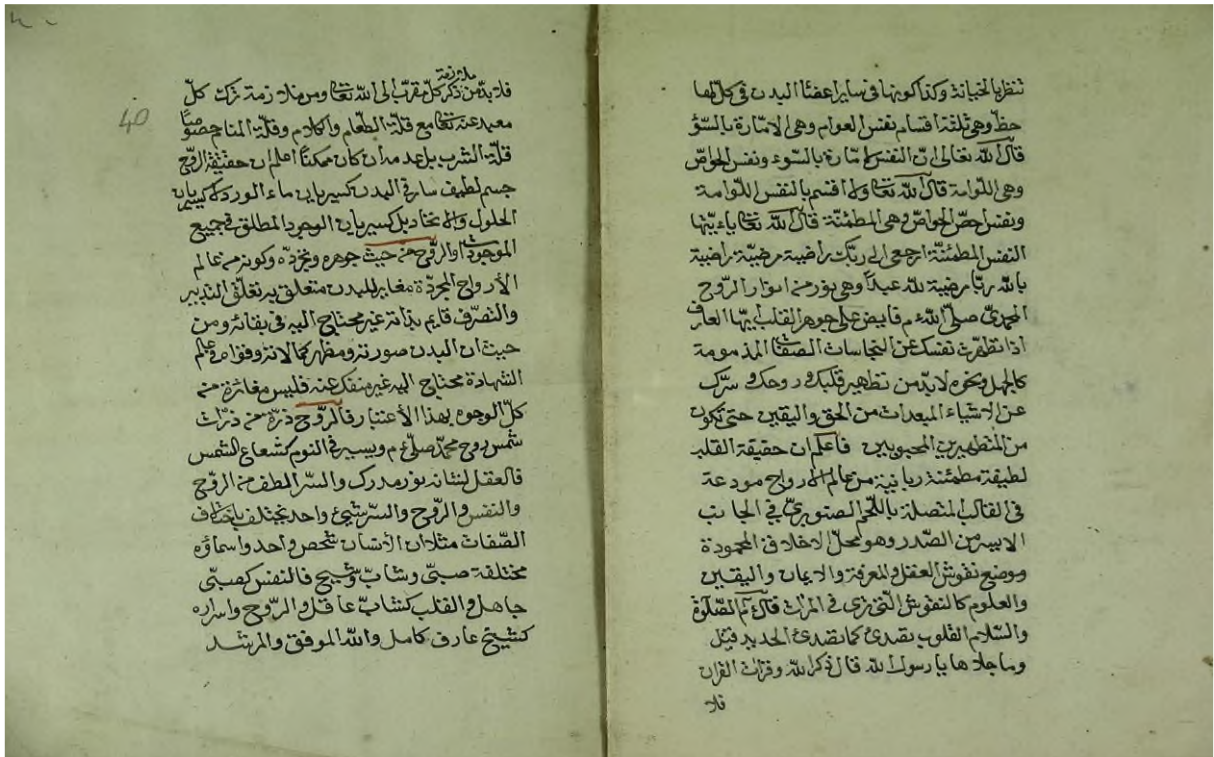 تنظر بالخيانة وكذا كونها فى ساير اعضٔا البدن فى كلّها
حظّ وهى ثلثة اقسام نفس العوام وهى الامّارة بالسّؤ
قال الله تعالى انّ النفس لامّارة بالسّوء ونفس الخواصّ
وهى اللّوامة قال الله تعا ولا اقسم بالنفس اللّوامة
ونفس اخصّ الخواصّ وهى المطمئنّة قال الله تعا ياءيّتها
النفس المطمئنّة ارجعى الى ربّك راضية مرضيّة راضية
بالله ربّا مرضية لله عبداً وهى نور من انوار الرّوح
المحمدىّ صلّى الله ع م فايض على جوهر القلب ايّها العارف
اذا تطهّرت نفسك عن النجاسات الصّفات المذمومة
كالجهل ونحوه لابدّ من تطهير قلبك وروحك وسرّك
عن الاشياء المبعدات من الحق واليقين حتى تكون
من المتطهرين المحبوبين فاعلم ان حقيقة القلب
لطيفة مطمئنة ربانية من عالم الارواح مودعة
فى القالب المتصلة باللّحم الصنوبرىّ فى الجانب
الايسر من الصّدر وهو محلّ الاخلاق المحمودة
وموضع نقوش العقل والمعرفة والايمان واليقين
والعلوم كالنقوش الّتى ترى فى المرات قال ع م الصّلوة
والسّلام القلوب يصدئ كما يصدئ الحديد قيل
وما جلاها يا رسول الله قال ذكر الله وقرات القران
فلا
40
ملازمة
فلا بدّ من ذكر كلّ مقرّب الى الله تعا ومن ملازمة ترك كلّ
مبعد عنه تعا مع قلّة الطّعام والكلام وقلّة المنام خصوصًا
قلّة الشرب بل عدمه ان كان ممكنًا اعلم ان حقيقة الرّوح
جسم لطيف سار فى البدن كسيريان ماء الورد لا كسيريان
الحلول والاتحاد بل كسيريان الوجود المطلق فى جميع
الموجودات والرّوح من حيث جوهره وتجرّده وكونه من عالم
الأرواح المجرّدة مغاير للبدن متعلق به تعلّق التدبير
والتصرّف قايم بذاته غير محتاج اليه فى بقائه ومن
حيث ان البدن صورته ومظهر كمالاته وقواه فى عالم
الشهادة محتاج اليه غير منفك عنه فليس مغائرة من
كلّ الوجوه بهذا الأعتبار فالرّوح ذرّة من ذرّات
شمس روح محمّد صلّى ع م ويسير فى النوم كشعاع الشمس
فالعقل لسانه نور مدرك والسّر الطف من الرّوح
والنفس والرّوح والسّر شيئ واحد يختلف باختلاف
الصّفات مثلا ان الأنسان شخص واحد واسماؤه
مختلفة صبىّ وشابّ وشيخ فالنفس كصبىّ
جاهل والقلب كشابّ عاقل والرّوح واسراره
كشيخ عارف كامل والله الموفق والمرشد